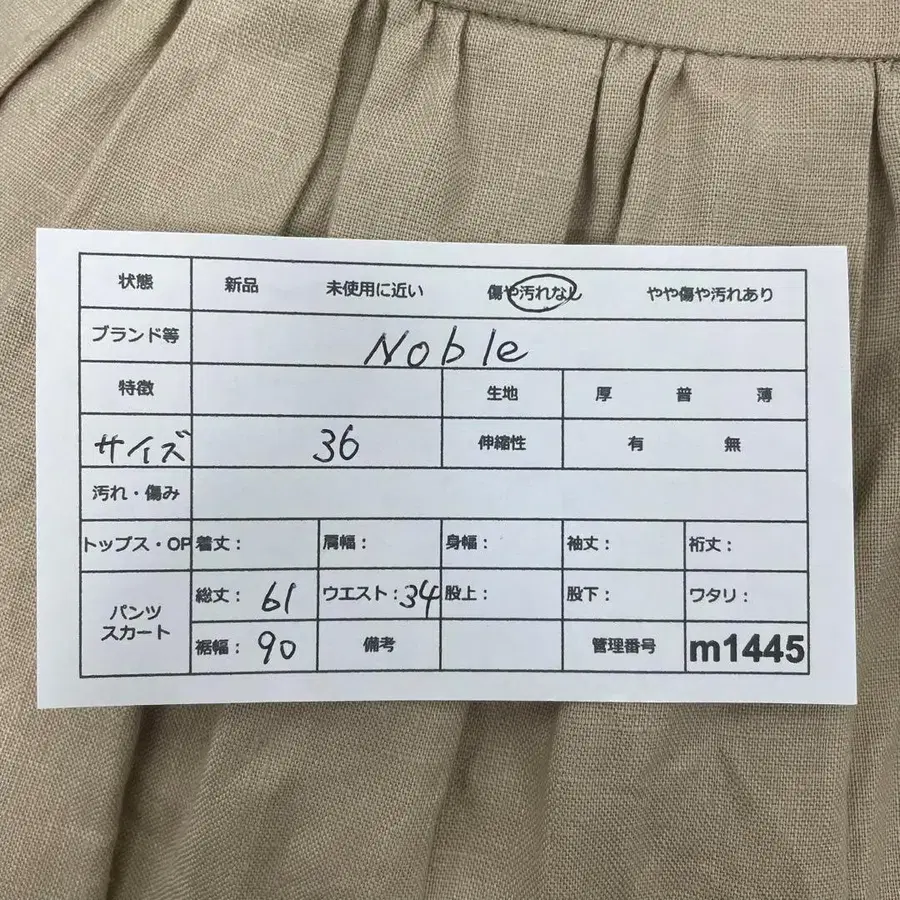 状態 新品 未使用に近い 傷や汚れなし やや傷や汚れあり
ブランド等 Noble
特徴 生地 厚 普 薄
サイズ 36 伸縮性 有 無
汚れ・傷み
トップス・OP 着丈: 肩幅: 身幅: 袖丈: 裄丈:
パンツ スカート 総丈: 61 ウエスト: 34 股上: 股下: ワタリ:
裾幅: 90 備考 管理番号 m1445